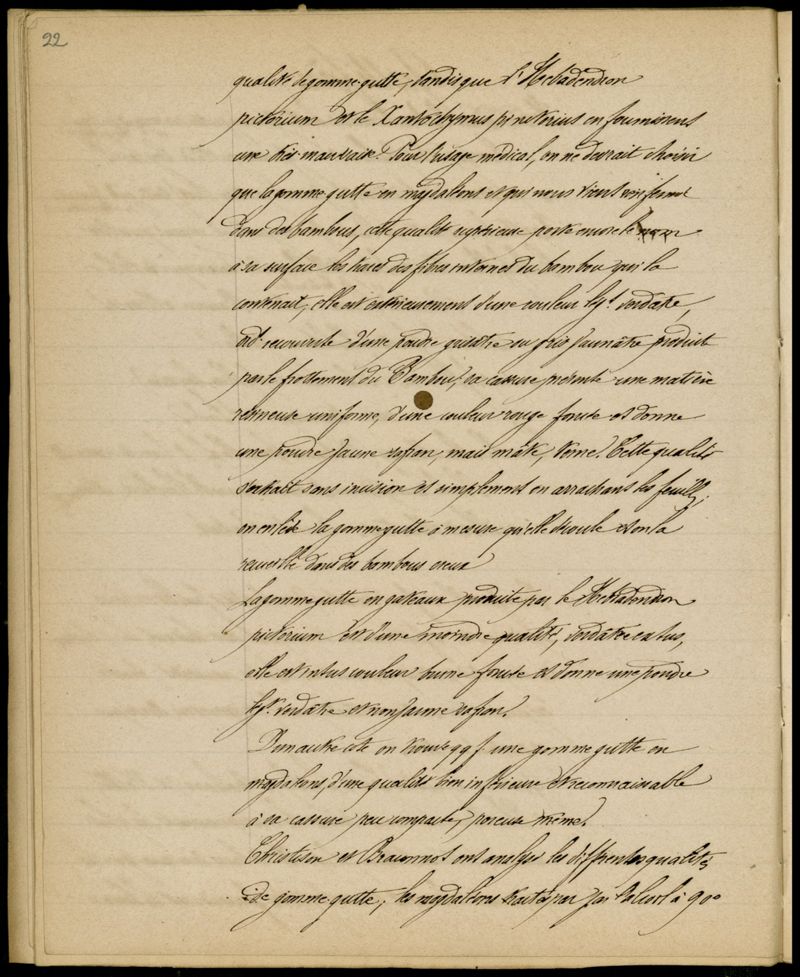 22
qualité de gomme-gutte, tandis que l'Hebradendron
pictorium et le Xantochymus pinctorius en fournissent
une très mauvaise. Pour l'usage médical, on ne devrait choisir
que la gomme gutte en magdaléons et qui nous vient renfermée
dans des bambous, cette qualité supérieure porte encore le nom
à sa surface les traces des fibres internes du bambou qui la
contenait, elle est extérieurement d'une couleur lgt. verdâtre,
est recouverte d'une poudre grisâtre ou gris jaunâtre produit
par le frottement du Bambou, sa cassure présente une matière
résineuse uniforme, d'une couleur rouge foncée et donne
une poudre jaune safran, mais mâte, terne. Cette qualité
s'extrait sans incision et simplement en arrachant les feuilles,
on enlève la gomme gutte à mesure qu'elle découle et on la
recueille dans des bambous creux
La gomme gutte en gateaux produite par le Hebradendron
pictorium est d'une moindre qualité, verdâtre extus,
elle est intus couleur brune foncée et donne une poudre
lgt. verdâtre et non jaune safran.
D'un autre côté on trouve qqf. une gomme gutte en
magdaléons, d'une qualité bien inférieure et reconnaissable
à sa cassure peu compacte, poreuse même.
Christison et Braconnot ont analysé les différentes qualités
de gomme gutte, les magdaléons traités par par l'alcool à 90°